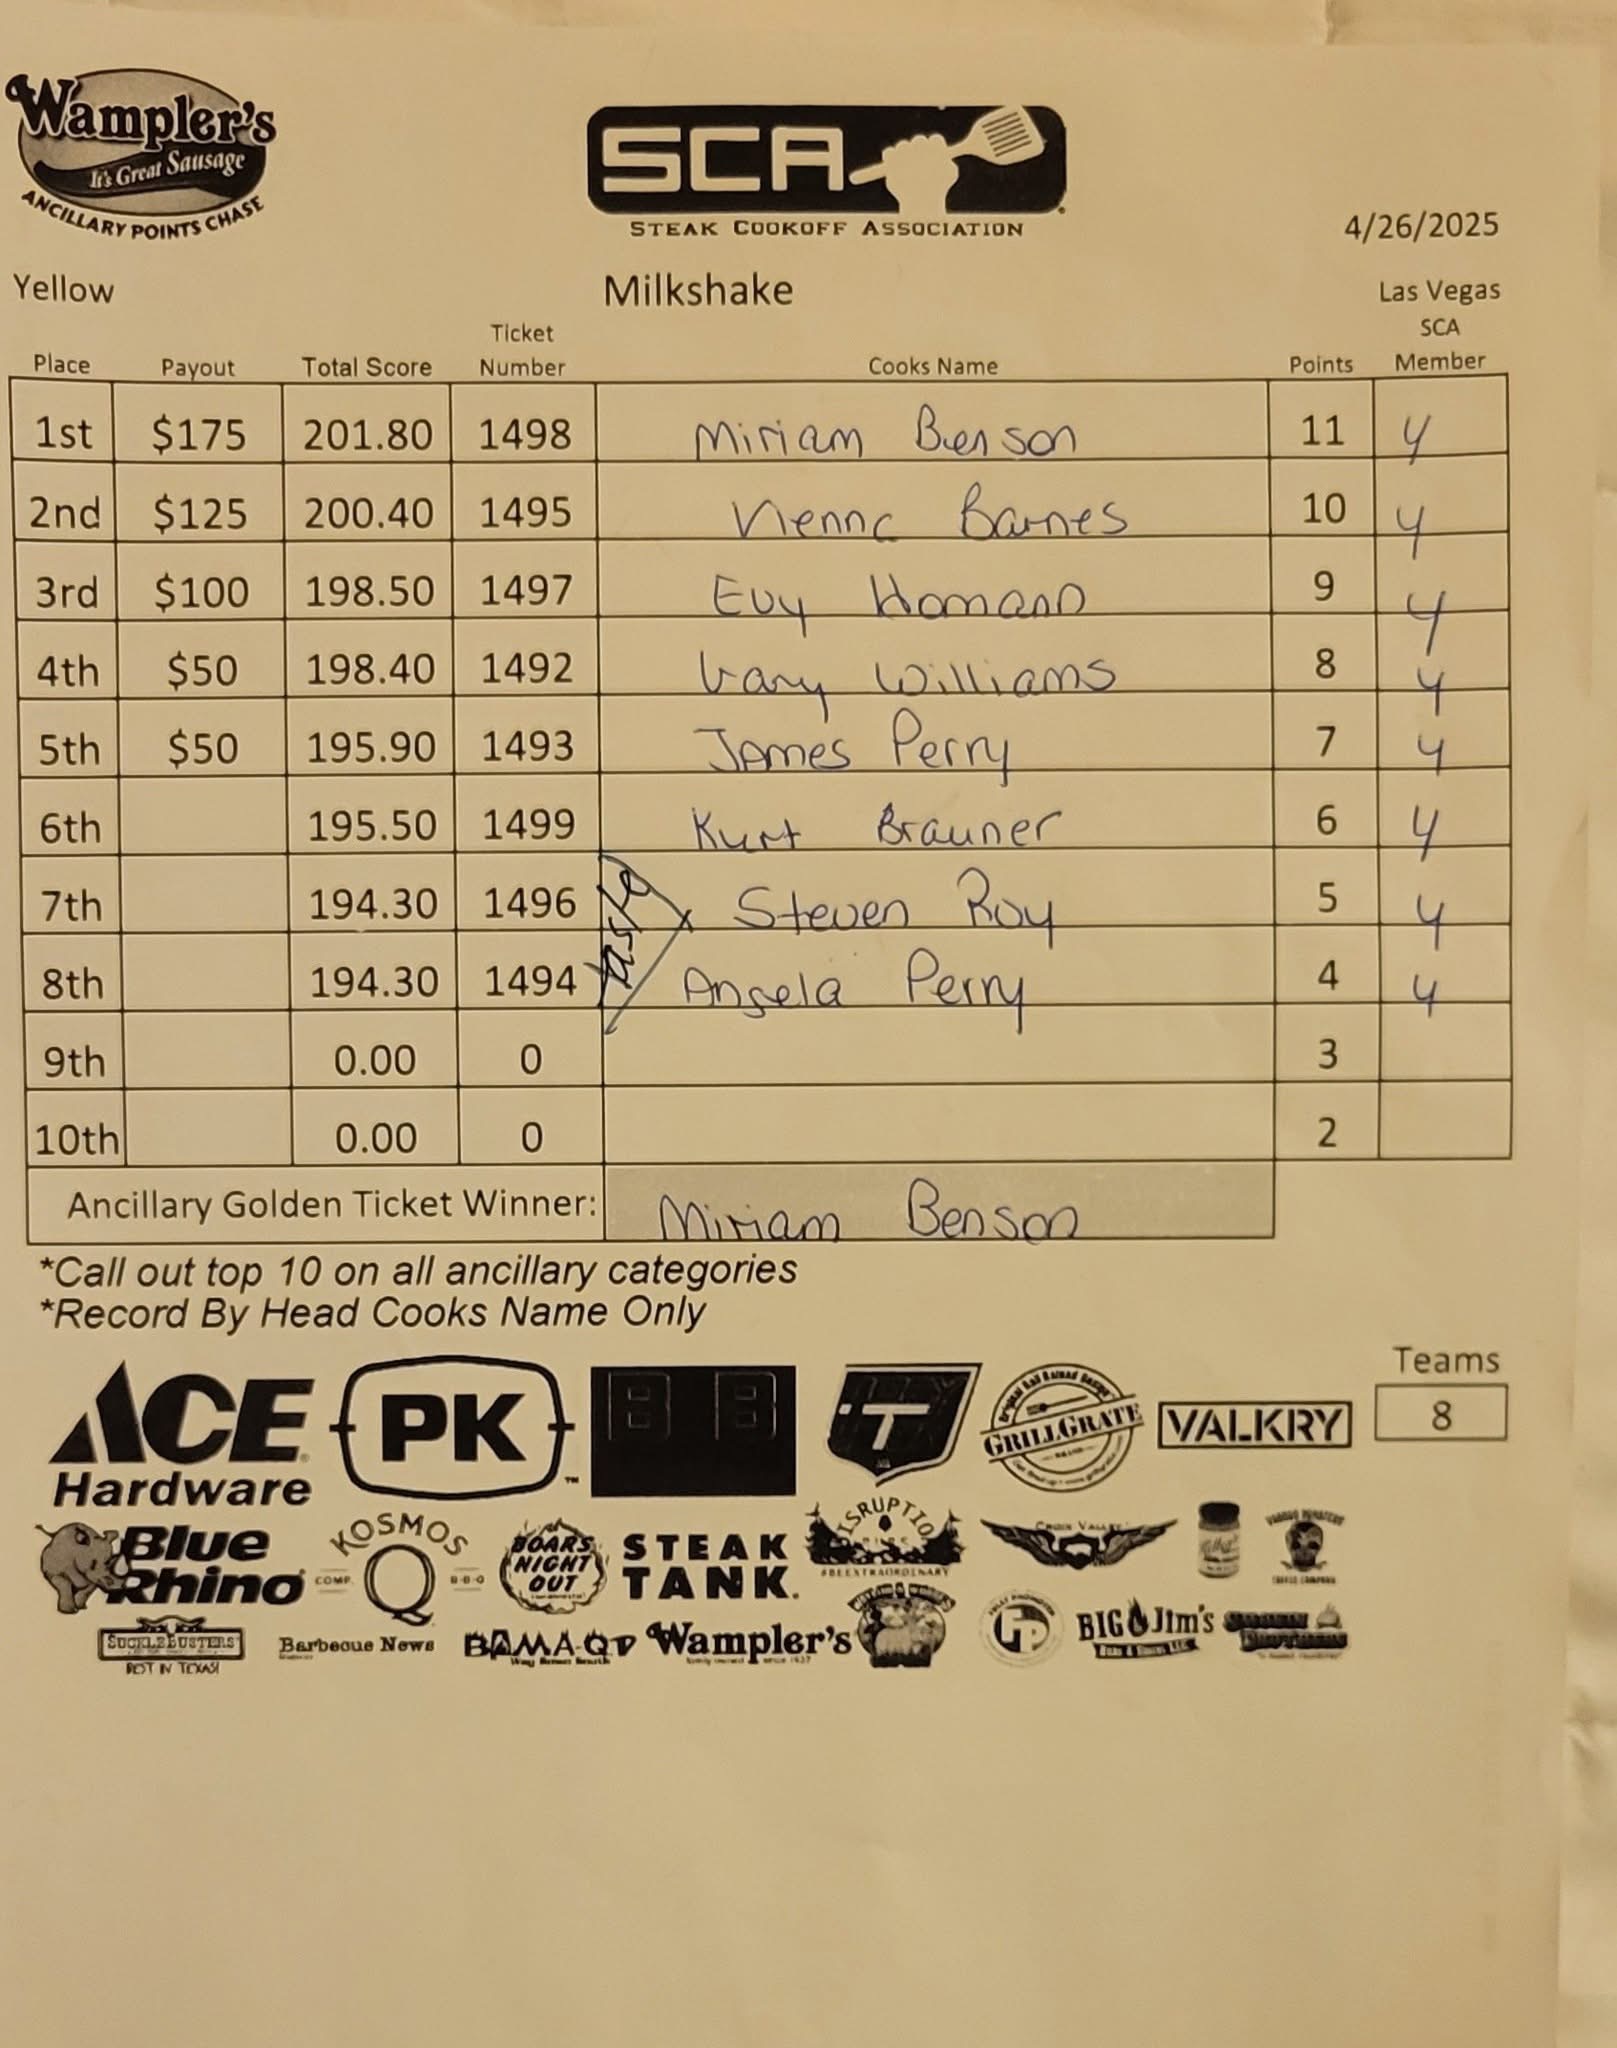 Wampler's
It's Great Sausage
ANCILLARY POINTS CHASE
SCA
STEAK COOKOFF ASSOCIATION
4/26/2025
Yellow Milkshake Las Vegas
Place Payout Total Score Ticket Number Cooks Name Points SCA Member
1st $175 201.80 1498 Miriam Benson 11 y
2nd $125 200.40 1495 Vienna Barnes 10 y
3rd $100 198.50 1497 Evy Homann 9 y
4th $50 198.40 1492 Gary Williams 8 y
5th $50 195.90 1493 James Perry 7 y
6th 195.50 1499 Kurt Brauner 6 y
7th 194.30 1496 taste Steven Roy 5 y
8th 194.30 1494 Angela Perry 4 y
9th 0.00 0 3
10th 0.00 0 2
Ancillary Golden Ticket Winner: Miriam Benson
*Call out top 10 on all ancillary categories
*Record By Head Cooks Name Only
Teams
8
ACE Hardware
PK
B B
T
GRILLGRATE
VALKRY
Blue Rhino
KOSMOS Q
COMP. B-B-Q
BOARS NIGHT OUT
STEAK TANK
#BEEXTRAORDINARY
CROIX VALLEY
SUCKLEBUSTERS
BEST IN TEXAS!
Barbecue News
BAMA-Q TV
Wampler's
BIG Jim's